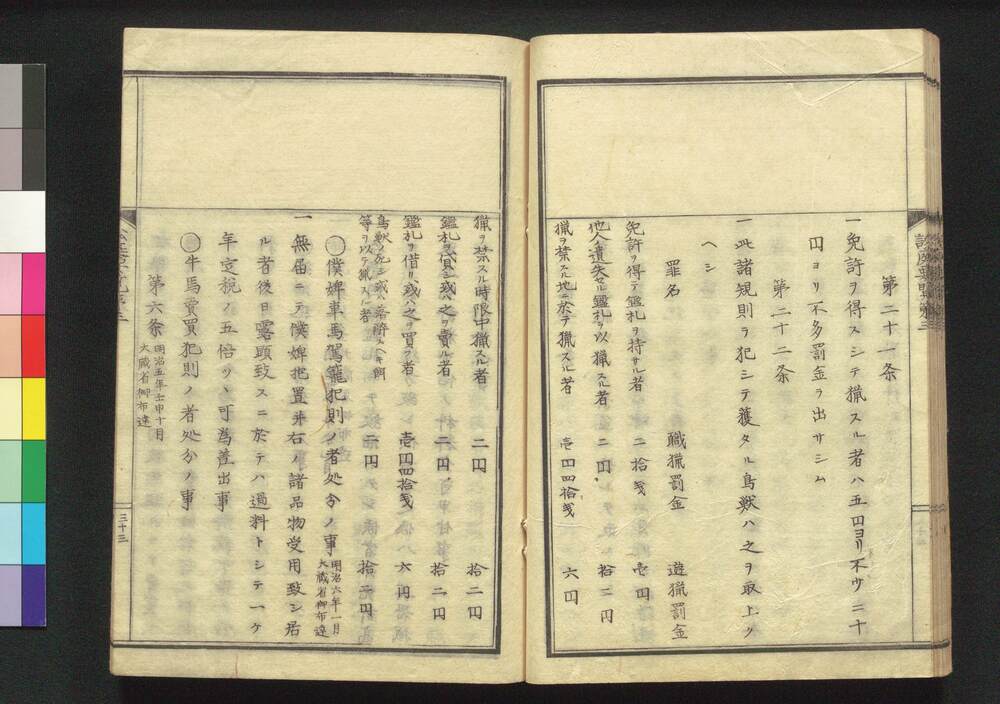 第二十一条
一免許ヲ得スシテ猟スル者ハ五円ヨリ不少二十
円ヨリ不多罰金ヲ出サシム
第二十二条
一此諸規則ヲ犯シテ獲タル鳥獣ハ之ヲ取上ク
ヘシ
罪名 職猟罰金 遊猟罰金
免許ヲ得テ鑑札ヲ持サル者 二拾戔 壱円
他人ノ遺失セル鑑札ヲ以猟スル者 二円 拾二円
猟ヲ禁スル地ニ於テ猟スル者 壱円四拾戔 六円
猟ヲ禁スル時限中猟スル者 二円 拾二円
鑑札ヲ貸シ或ハ之ヲ賣ル者 二円 拾二円
鑑札ヲ借リ或ハ之ヲ買フ者 壱円四拾戔 六円
鳥獣ノ死シ或ハ斎酔スヘキ餌
等ヲ以テ猟スル者 二円 拾二円
○僕婢車馬駕籠犯則ノ者処分ノ事 明治六年一月
大蔵省御布達
一無届ニテ僕婢抱置并右ノ諸品物受用致シ居
ル者後日露顕致スニ於テハ過料トシテ一ケ
年定税ノ五倍ツヽ可為差出事
○牛馬賣買犯則ノ者処分ノ事
第六条 明治五年壬申十月
大蔵省御布達
三十三